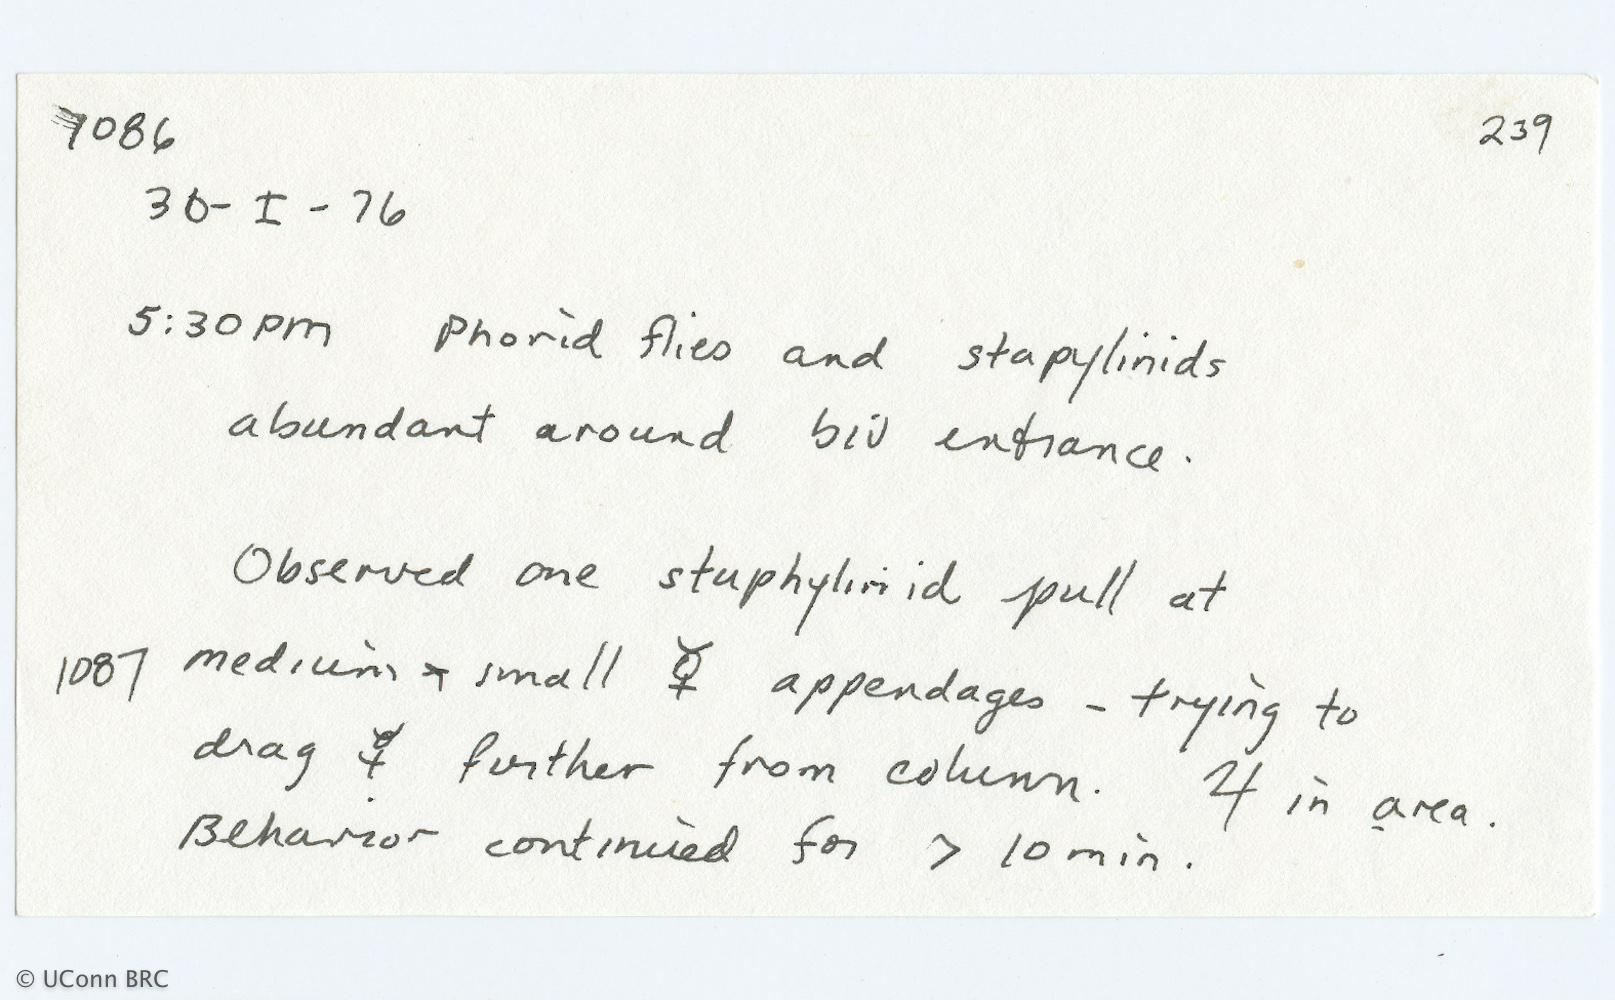 1086 239
30-I-76
5:30pm Phorid flies and stapylinids
abundant around biv entrance.
Observed one staphylinid pull at
1087 medium + small ☿ appendages - trying to
drag ☿ further from column. 4 in area.
Behavior continued for > 10 min.
© UConn BRC